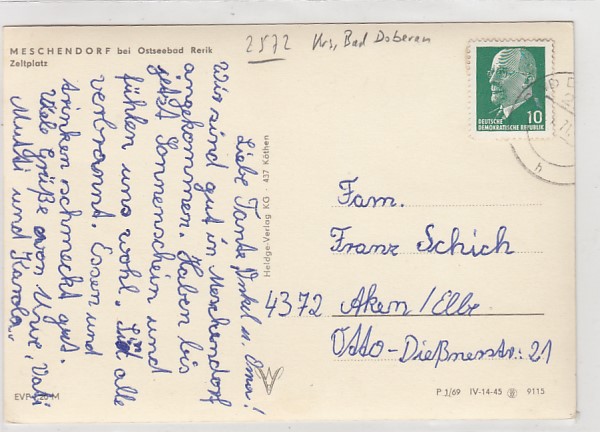 MESCHENDORF bei Ostseebad Rerik
Zeltplatz
2572 Krs, Bad Doberan
10
DEUTSCHE
DEMOKRATISCHE REPUBLIK
Liebe Tante, Onkel u. Oma!
Wir sind gut in Meschendorf
angekommen. Haben bis
jetzt Sonnenschein und
fühlen uns wohl. Sind alle
verbrannt. Essen und
trinken schmeckt gut.
Viele Grüße von Uwe, Vati
Mutti und Karola.
Heldge-Verlag KG · 437 Köthen
Fam.
Franz Schich
4372 Aken/Elbe
Otto-Dießnerstr: 21
P 1/69 IV-14-45 9115